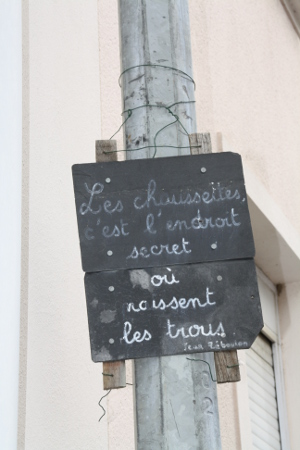 Les chaussettes,
c'est l'endroit
secret
où
naissent
les trous.
Jean